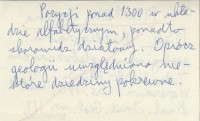 Pozycji ponad 1300 w ukła-
dzie alfabetycznym, ponadto
skorowidz działowy. Oprócz
geologii uwzględniono nie-
które dziedziny pokrewne.